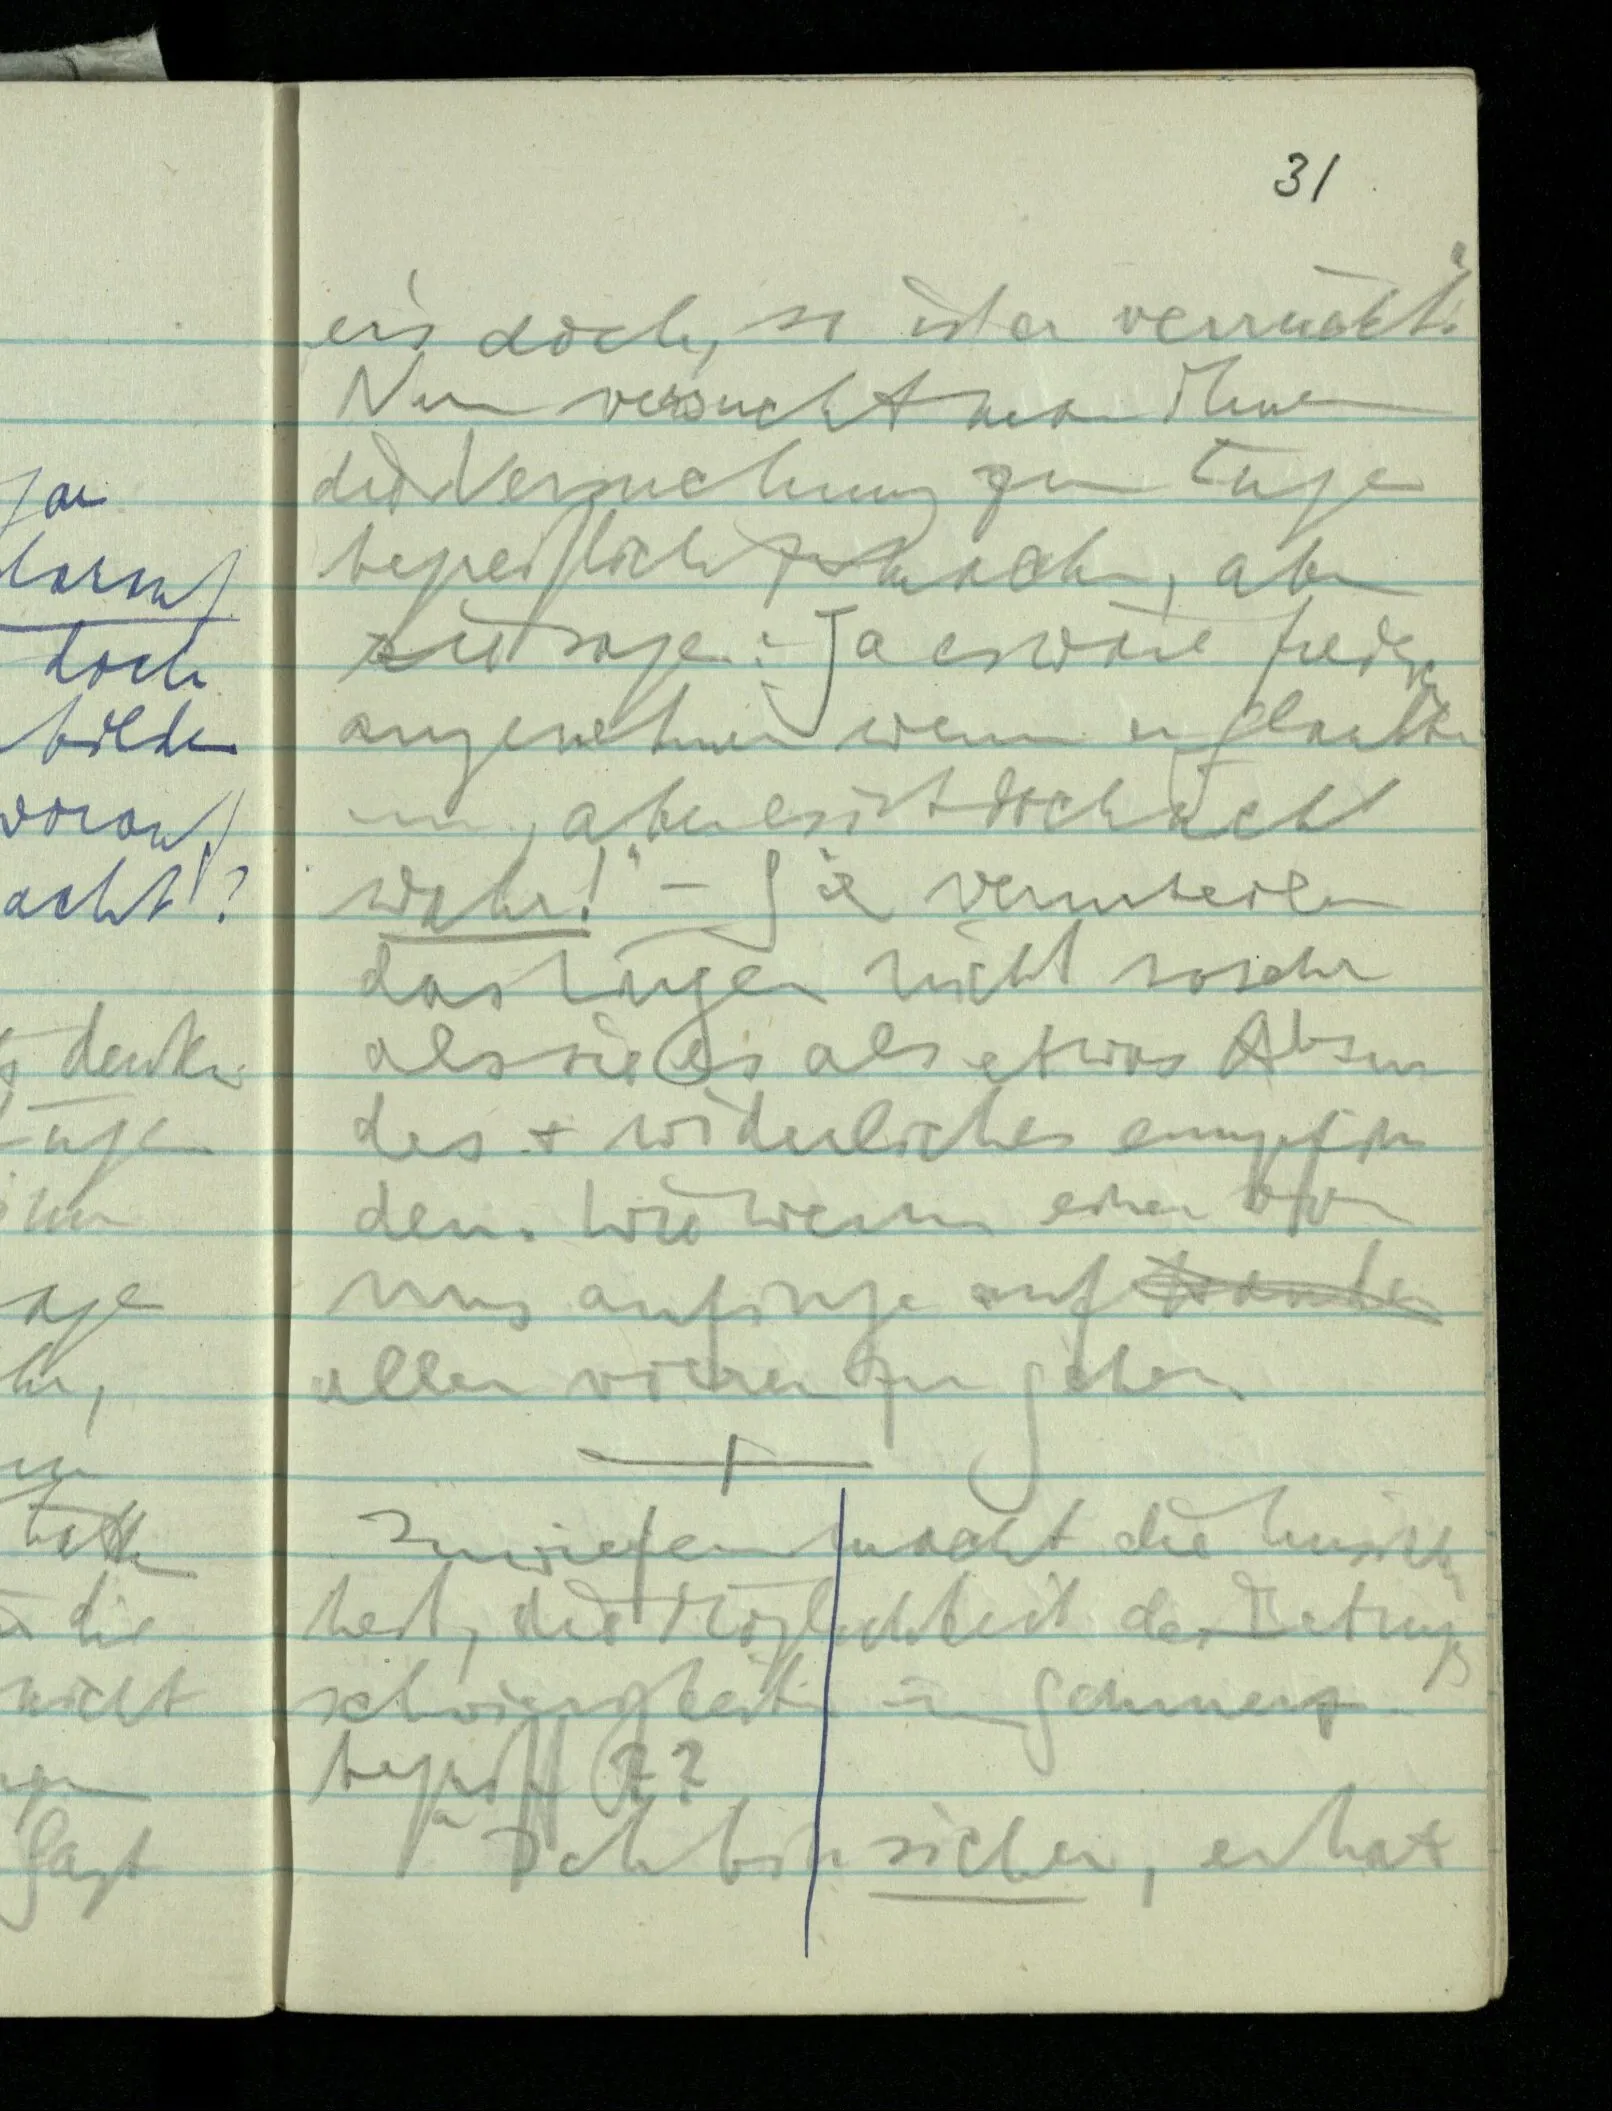 31
er's doch, so ist er verrückt."
Nun versucht man ihnen
die Versuchung zum Lügen
begreiflich zu machen, aber
sie sagen: „Ja es wäre freilich
angenehm wenn er glaubte
, aber es ist doch nicht
wahr!" – Sie verurteilen
das Lügen nicht so sehr
als sie es als etwas Absur
des + widerliches empfin
den. Wie wenn einer von
uns anfinge auf
allen vieren zu gehen.
Inwiefern macht die Unsicher
heit, die Möglichkeit des Betrugs
schwierigkeiten im Schmerz
begriff??
„Ich bin sicher, er hat
ja
darauf
doch
bilden
worauf
acht"?
denken
Lügen
ihm
age
hr,
hätte
die
nicht
Sagt